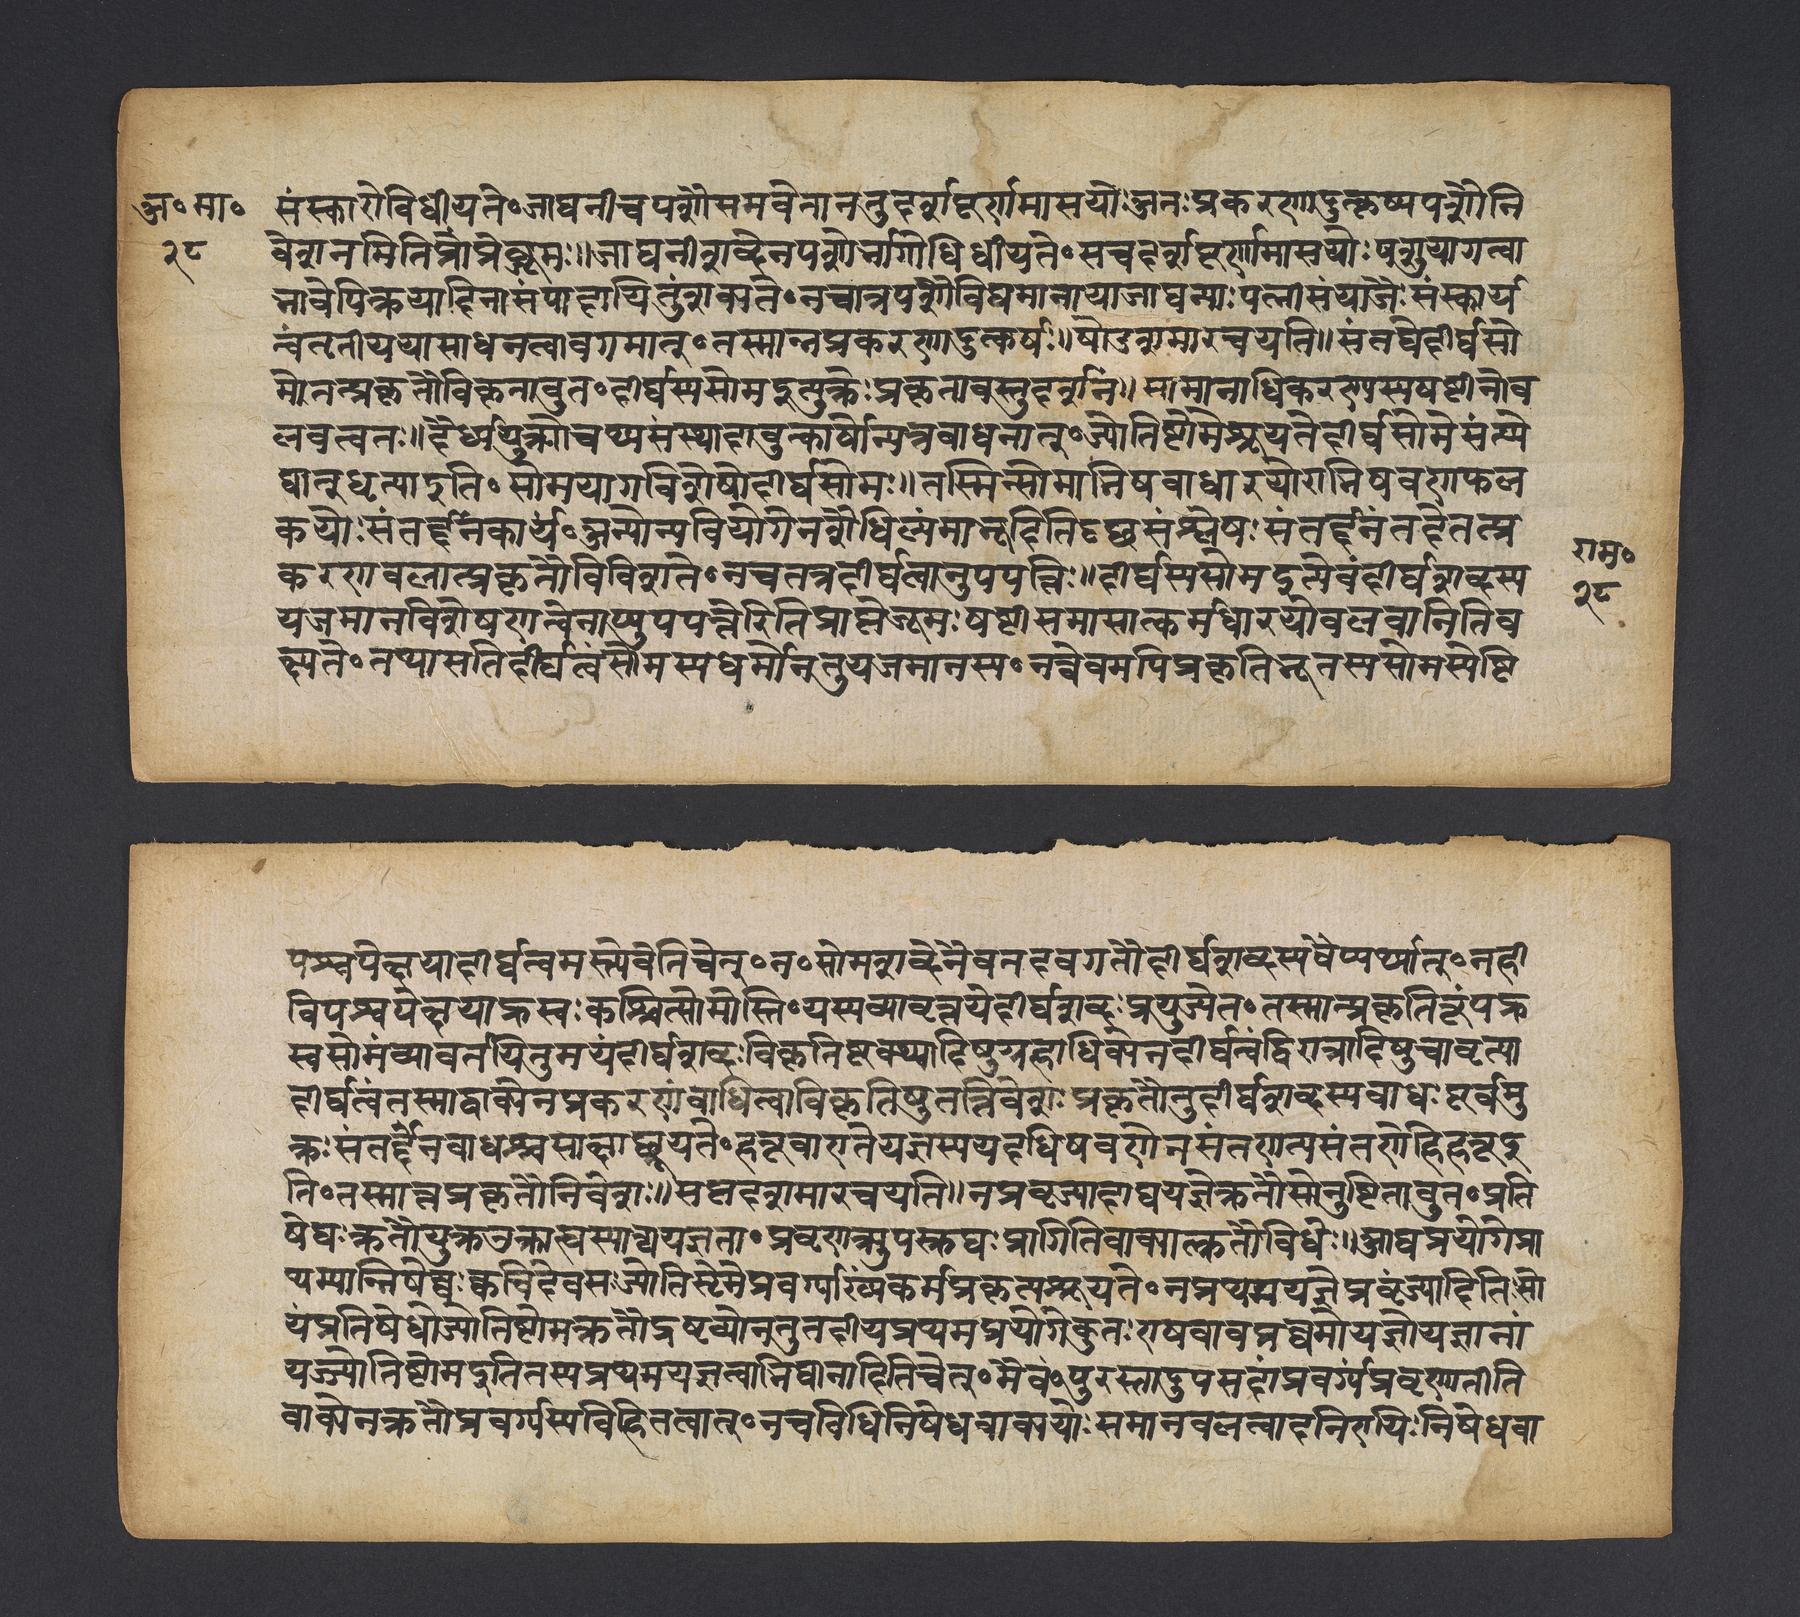 अ॰मा॰
२८
संस्कारोविधीयते॰जाघनीचपशौसमवेतानतुदर्शपूर्णमासयोःअतःप्रकरणादुत्कृष्यपशौनि
वेशनमितिप्राप्रेब्रूमः॥जाघनीशब्देनपशोर्भागोभिधीयते॰सचदर्शपूर्णमासयोःपशुयागत्वा
भावेपिक्रयादिनासंपादयितुंशक्यते॰नचात्रपशौविद्यमानायाजाघन्याःपत्नीसंयाजैःसंस्कार्य
त्वंतृतीययासाधनत्वावगमात्॰तस्मान्नप्रकरणादुत्कर्षः॥षोडशमारचयति॥संतर्द्येद्दीर्घसो
मेतत्प्रकृतौविकृतावुत॰दीर्घस्यसोमइत्युक्तेःप्रकृतावस्तुदर्शनं॥सामानाधिकरण्यस्यषष्टीतोब
लवत्वतः॥दैर्ध्यायुक्तोचप्यसंस्थादावुत्कार्षोन्यत्रबाधनात्॰ज्योतिष्टोमेश्रूयतेदीर्घसोमेसंत्प्ये
द्यात्नुधृत्याइति॰सोमयागविशेषोदीर्घसोमः॥तस्मिन्सोमाभिषवाधारयोरभिषवणफल
कयोःसंतर्द्दनंकार्यं॰अन्योन्यवियोगेनशैथिल्यंमाभूदितिदृढसंश्लेषःसंतर्द्दनंतदेतत्प्र
करणबलात्प्रकृतौविविशते॰नचतत्रदीर्घत्वानुपपत्तिः॥दीर्घस्यसोमइत्येवंदीर्घशब्दस्य
यजमानविशेषणत्वेनाप्युपपत्तेरितिप्राप्तेब्रूमःषष्टीसमासात्कर्मधारयोबलवानितिव
क्ष्यते॰तथासतिदीर्घत्वंसोमस्यधर्मोनतुयजमानस्य॰नन्वेवमपिप्रकृतिभूतस्यसोमस्येष्टि
रामु॰
२८
पश्वपेक्षयादीर्घत्वमस्त्येवेतिचेत्॰न॰सोमशब्देनैवतदवगतौदीर्घशब्दस्यवैय्यर्थ्यात्॰नही
ष्टिपश्वपेक्षयाह्रस्वःकश्चित्सोमोस्ति॰यस्यव्यावृत्तयेदीर्घशब्दःप्रयुज्येत॰तस्मात्प्रकृतिभूतंपह्र
स्वसोमंव्यावर्तयितुमयंदीर्घशब्दःविकृतिष्टक्थ्यादिषुग्रहाधिक्येनदीर्घत्वंद्विरात्रादिषुचावृत्या
दीर्घत्वंतस्माद्वाक्येनप्रकरणंबाधित्वाविकृतिषुतन्निवेशःप्रकृतौतुदीर्घशब्दस्यबाधःपूर्वमु
क्तःसंतर्द्दनबाधश्चसाक्षाच्छ्रूयते॰हनूवाएतेयज्ञस्ययदधिषवणेनसंतृणत्यसंतृणेहिहनूइ
ति॰तस्मान्नप्रकृतौनिवेशः॥सप्तदशमारचयति॥नप्रवृज्यादाद्ययज्ञेक्रतौसोनुष्टितावुत॰प्रति
षेधःक्रतौयुक्तउक्तात्यस्याद्ययज्ञता॰प्रवृणक्त्युपसद्यःप्रागितिवाक्यात्क्रतौविधेः॥आद्यप्रयोगेप्रा
थम्यान्निषेद्धुःक्वचिदेवसःज्योतिष्टोमेप्रवर्ग्याख्यंकर्मप्रकृत्यश्रूयते॰नप्रथमयज्ञेप्रवृंज्यादिति॰सो
यंप्रतिषेधोज्योतिष्टोमक्रतौद्रष्टव्योनतुतदीयप्रथमप्रयोगेकुतःएषवावप्रथमोयज्ञोयज्ञानां
यज्ज्योतिष्टोमइतितस्यप्रथमयज्ञत्वाभिधानादितिचेत्॰मैवं॰पुरस्तादुपसदांप्रवर्ग्यंप्रवृणक्तीति
वाक्येनक्रतौप्रवर्ग्यस्यविहितत्वात्॰नचविधिनिषेधवाक्ययोःसमानबलत्वादनिर्णयःनिषेधवा